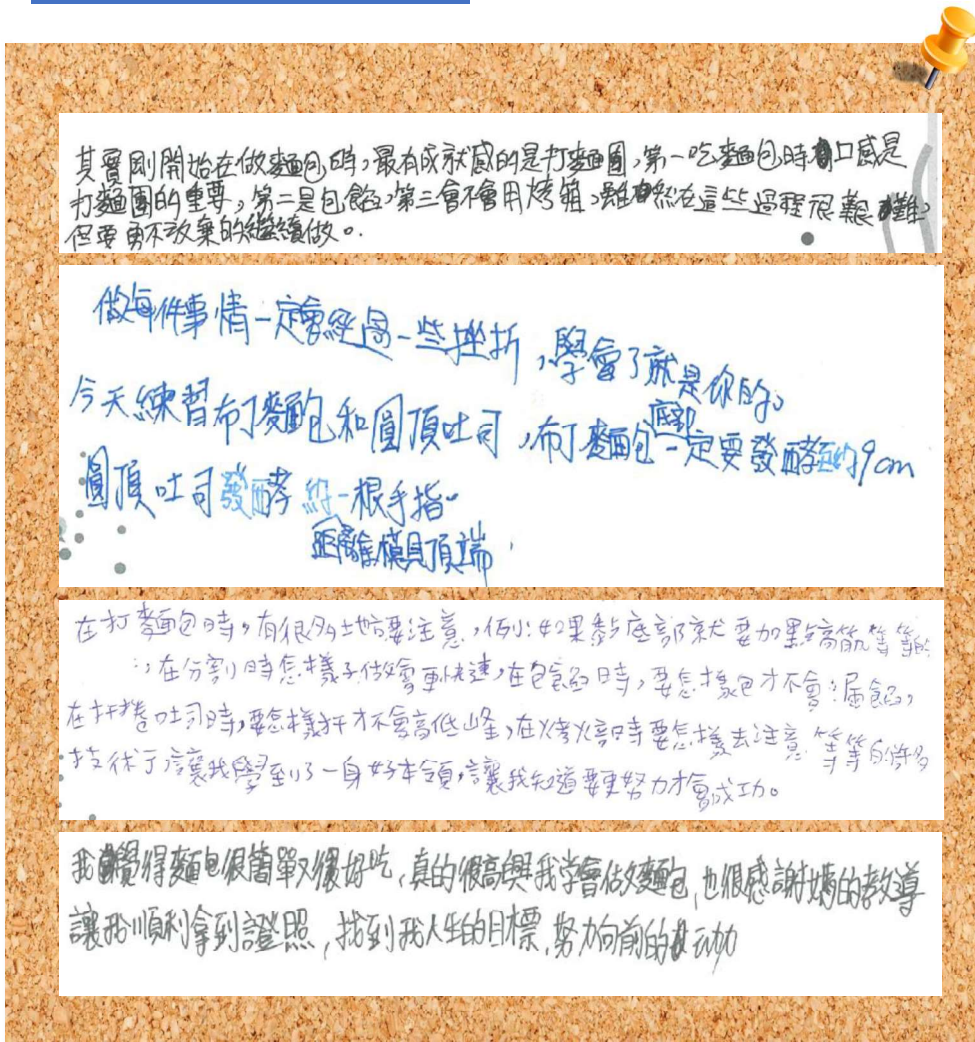 其實剛開始在做麵包時,最有成就感的是打麵團,第一吃麵包時口感是
打麵團的重要,第二是包餡,第三會不會用烤箱,雖然在這些過程很艱難,
但要勇不放棄的繼續做。
做每件事情一定會經過一些挫折,學會了就是你的。
今天練習布丁麵包和圓頂吐司,布丁麵包底部一定要發酵到約9cm
圓頂吐司發酵約一根手指。
距離模具頂端
在打麵包時,有很多地方要注意,例:如果黏底部就要加點高筋等等的
,在分割時怎樣子做會更快速,在包餡時,要怎樣包才不會漏餡,
在扞捲吐司時,要怎樣扞才不會高低峰,在烤焙時要怎樣去注意等等的許多
技術了讓我學到了一身好本領,讓我知道要更努力才會成功。
我覺得麵包很簡單又很好吃,真的很高興我学會做麵包,也很感謝媽的教導
讓我順利拿到證照,找到我人生的目標,努力向前的動力